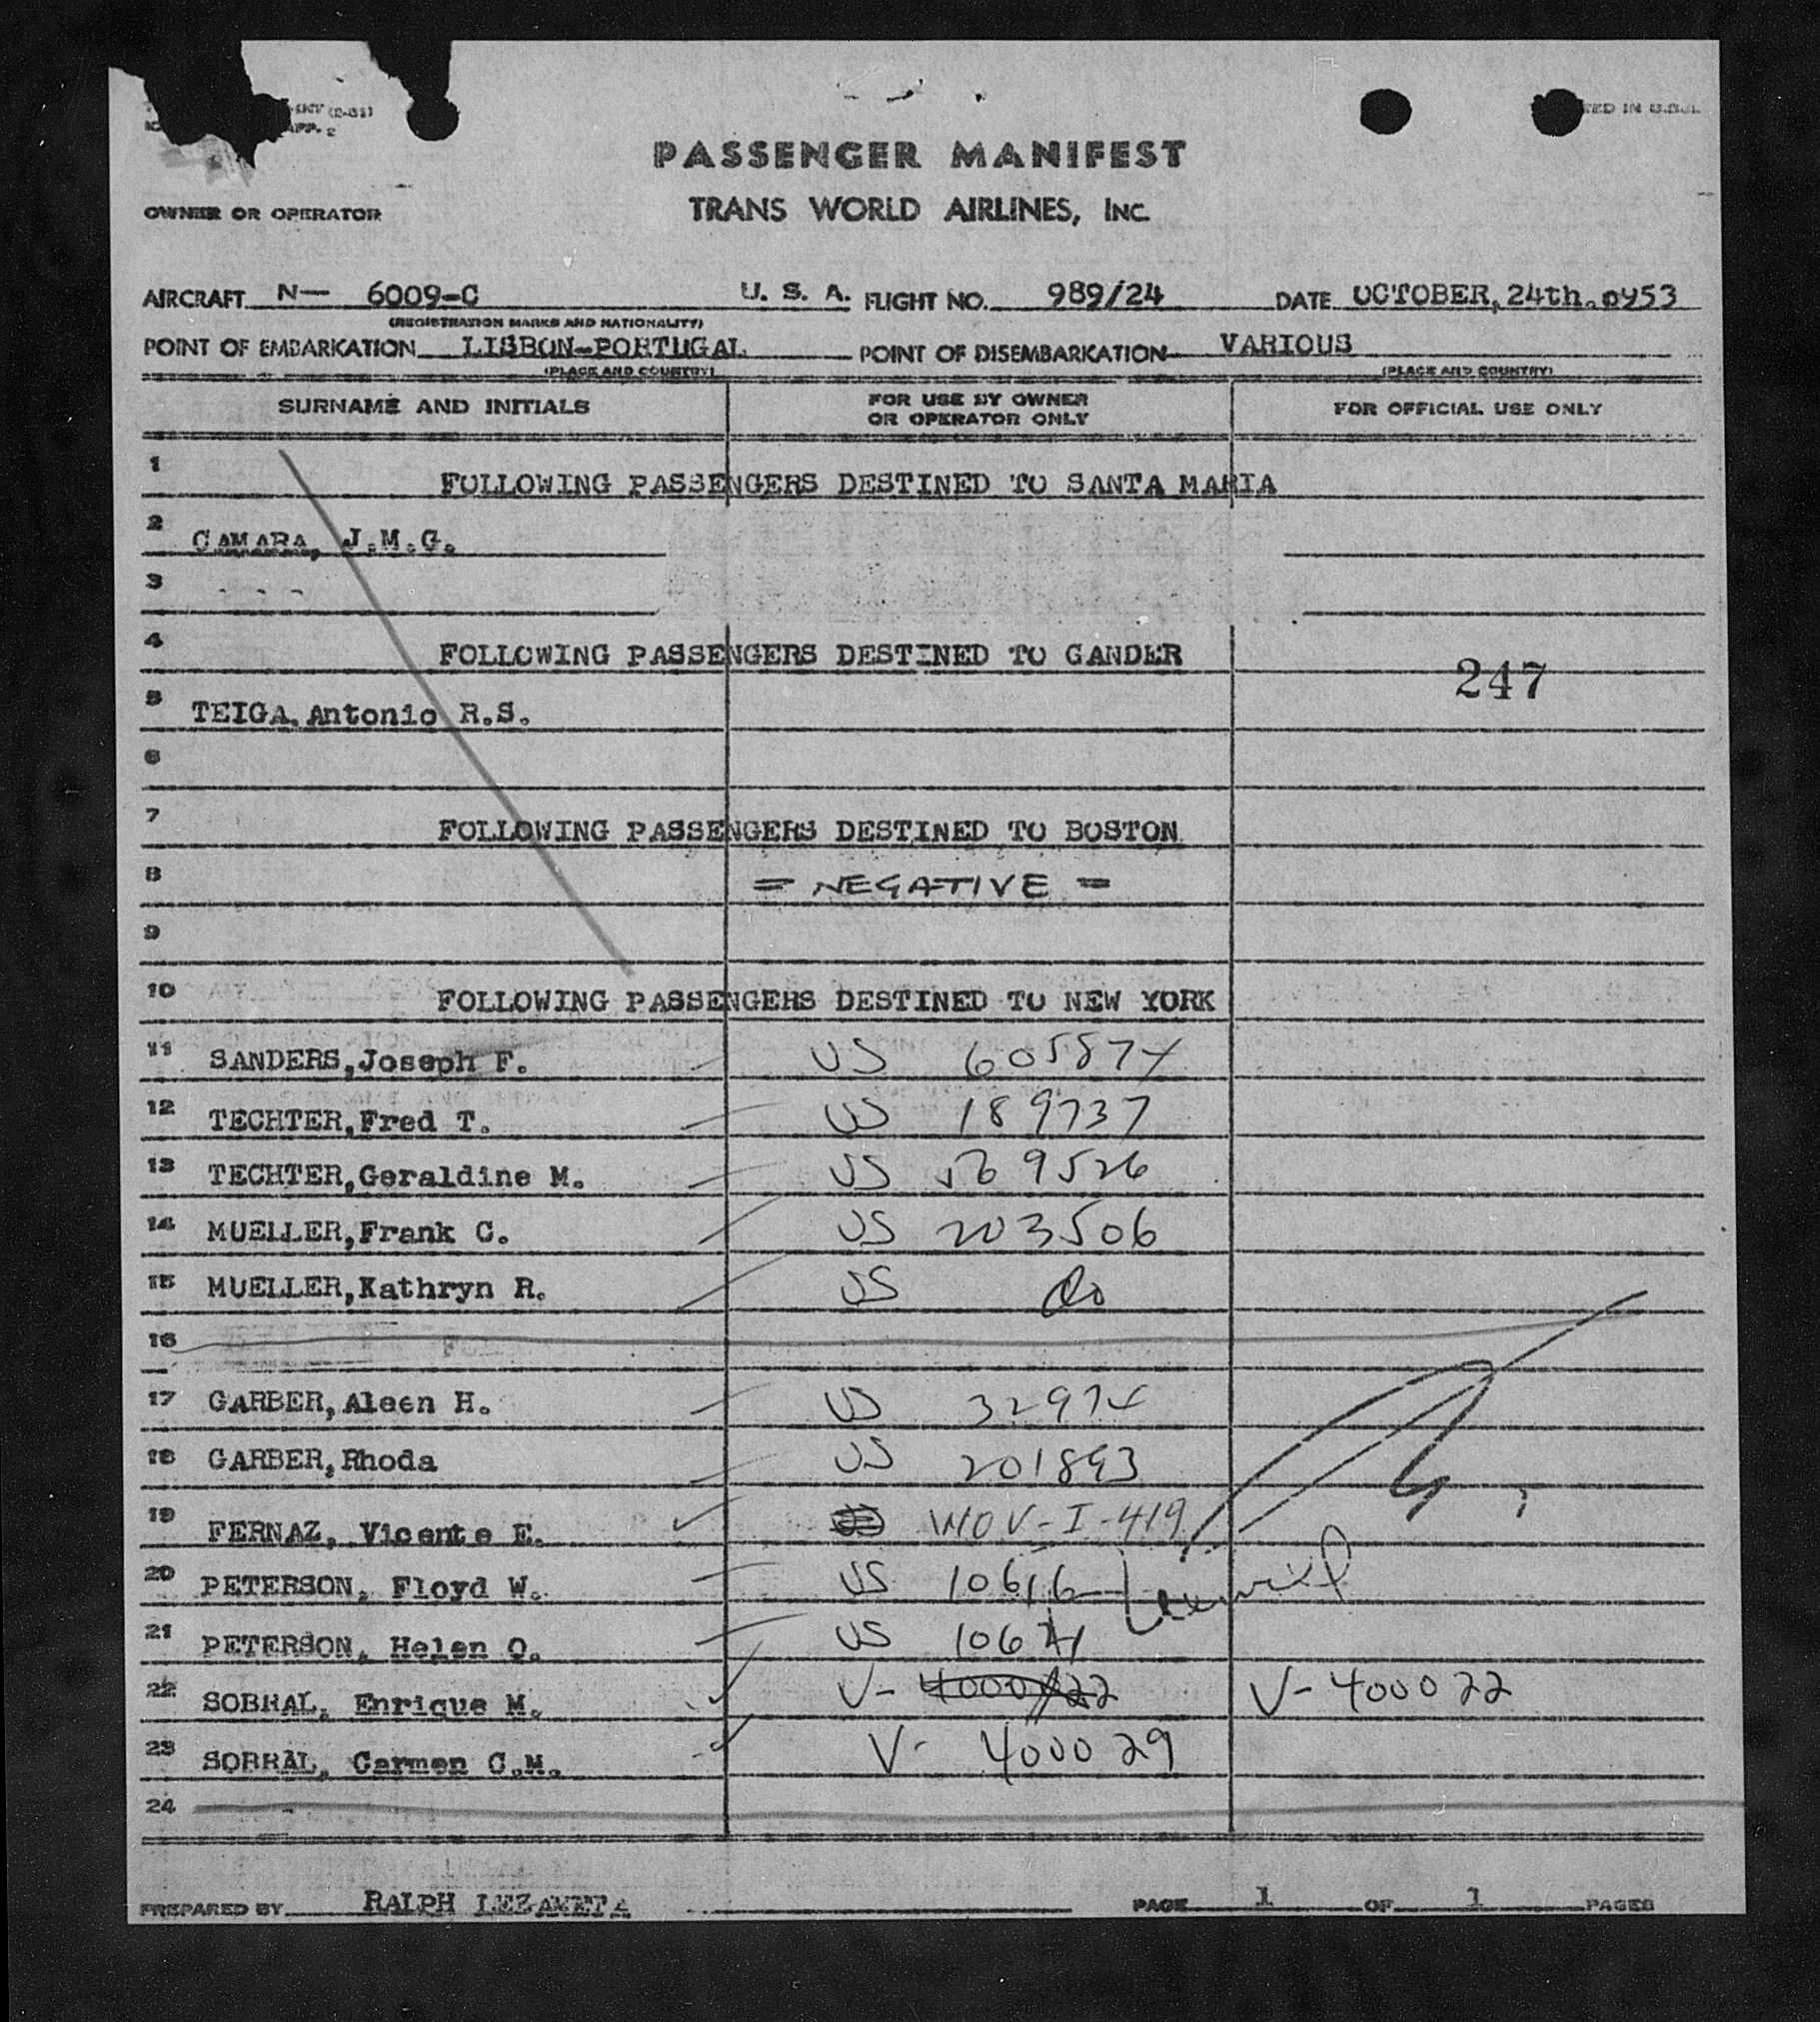 (2-51)
APP. 2
TED IN U.S.A.
PASSENGER MANIFEST
OWNER OR OPERATOR
TRANS WORLD AIRLINES, INC.
AIRCRAFT N— 6009-C U. S. A. FLIGHT NO. 989/24 DATE OCTOBER, 24th. 0953
(REGISTRATION MARKS AND NATIONALITY)
POINT OF EMBARKATION LISBON-PORTUGAL POINT OF DISEMBARKATION VARIOUS
(PLACE AND COUNTRY) (PLACE AND COUNTRY)
SURNAME AND INITIALS FOR USE BY OWNER OR OPERATOR ONLY FOR OFFICIAL USE ONLY
1 FOLLOWING PASSENGERS DESTINED TO SANTA MARIA
2 CAMARA, J.M.G.
3 - - -
4 FOLLOWING PASSENGERS DESTINED TO GANDER
247
5 TEIGA, Antonio R.S.
6
7 FOLLOWING PASSENGERS DESTINED TO BOSTON
8 = NEGATIVE =
9
10 FOLLOWING PASSENGERS DESTINED TO NEW YORK
11 SANDERS, Joseph F. US 605874
12 TECHTER, Fred T. US 189737
13 TECHTER, Geraldine M. US
14 MUELLER, Frank C. US 203506
15 MUELLER, Kathryn R. US do
16
17 GARBER, Aleen H. US 32974
18 GARBER, Rhoda US 201893
19 FERNAZ, Vicente E. MOV-I-419
20 PETERSON, Floyd W. US 10616
21 PETERSON, Helen O. US
22 SOBRAL, Enrique M. V- V-400022
23 SOBRAL, Carmen C.M. V- 400029
24
PREPARED BY RALPH LEZAMETA PAGE 1 OF 1 PAGES